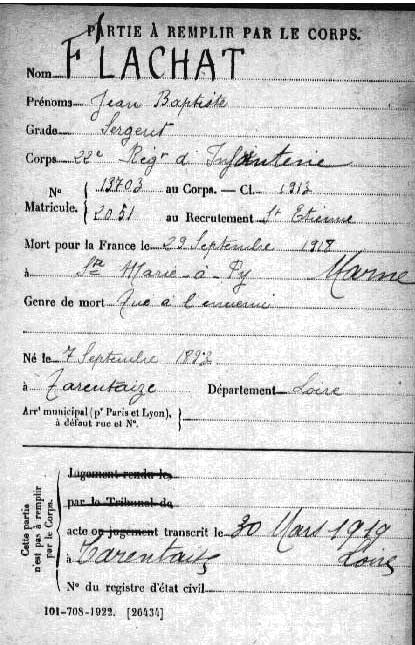 PARTIE À REMPLIR PAR LE CORPS.
Nom FLACHAT
Prénoms Jean Baptiste
Grade Sergent
Corps 22e Régt d'Infanterie
No 13703 au Corps. — Cl. 1912
Matricule. 2051 au Recrutement St Etienne
Mort pour la France le 29 Septembre 1918
à Ste Marie-à-Py Marne
Genre de mort Tué à l'ennemi
Né le 7 Septembre 1892
à Tarentaize Département Loire
Arrt municipal (pr Paris et Lyon),
à défaut rue et No.
Cette partie
n'est pas à remplir
par le Corps.
Jugement rendu le
par le Tribunal de
acte ou jugement transcrit le 30 Mars 1919
à Tarentaise Loire
No du registre d'état civil
101-708-1922. [26434]